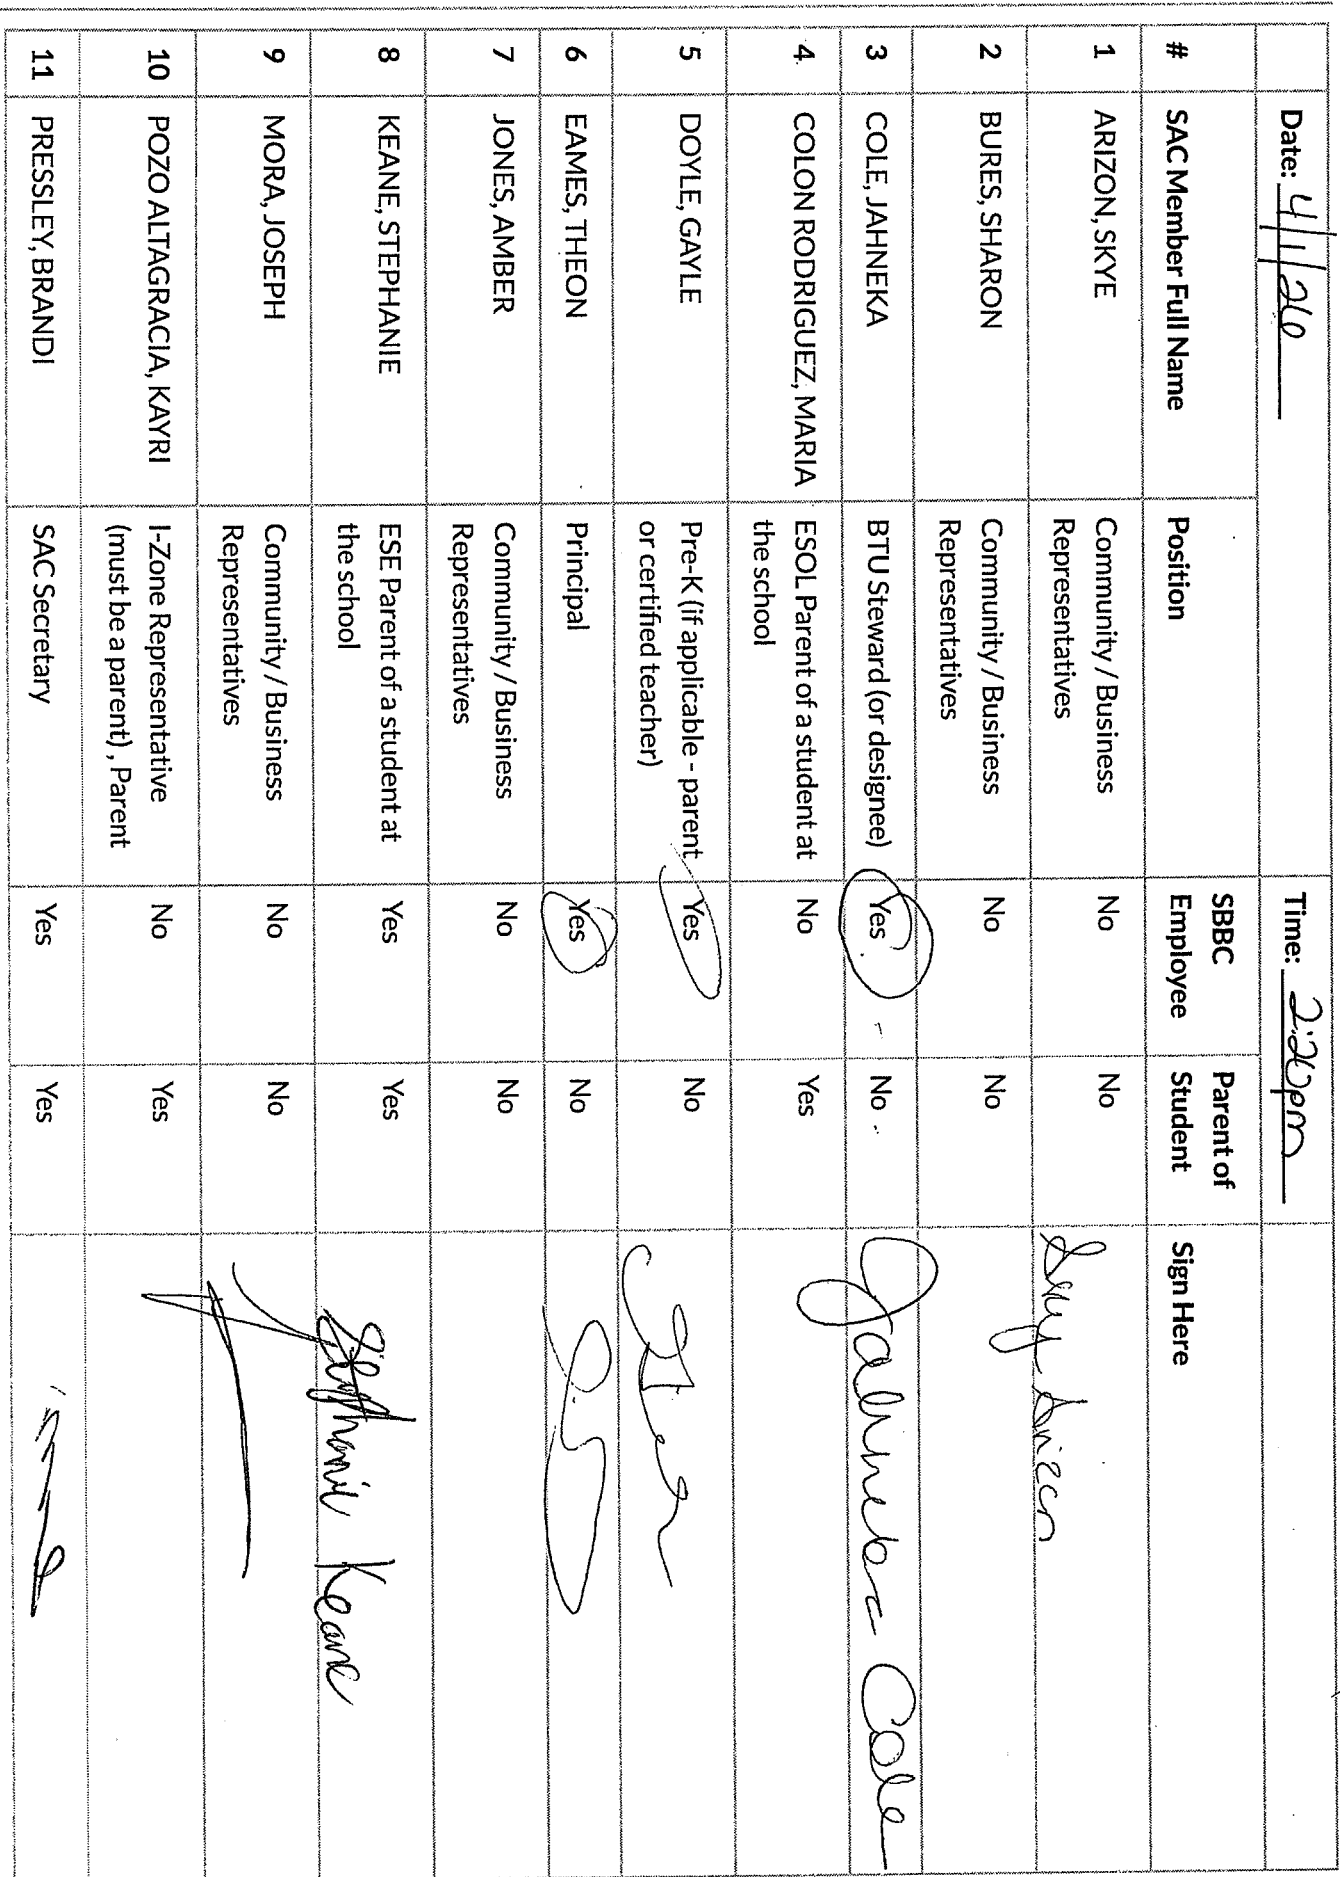 Date: 4/1/26 Time: 2:20pm
# SAC Member Full Name Position SBBC Employee Parent of Student Sign Here
1 ARIZON, SKYE Community / Business Representatives No No
2 BURES, SHARON Community / Business Representatives No No
3 COLE, JAHNEKA BTU Steward (or designee) Yes No Jahneka Cole
4 COLON RODRIGUEZ, MARIA ESOL Parent of a student at the school No Yes
5 DOYLE, GAYLE Pre-K (if applicable - parent or certified teacher) Yes No
6 EAMES, THEON Principal Yes No
7 JONES, AMBER Community / Business Representatives No No
8 KEANE, STEPHANIE ESE Parent of a student at the school Yes Yes Stephanie Keane
9 MORA, JOSEPH Community / Business Representatives No No
10 POZO ALTAGRACIA, KAYRI I-Zone Representative (must be a parent) , Parent No Yes
11 PRESSLEY, BRANDI SAC Secretary Yes Yes